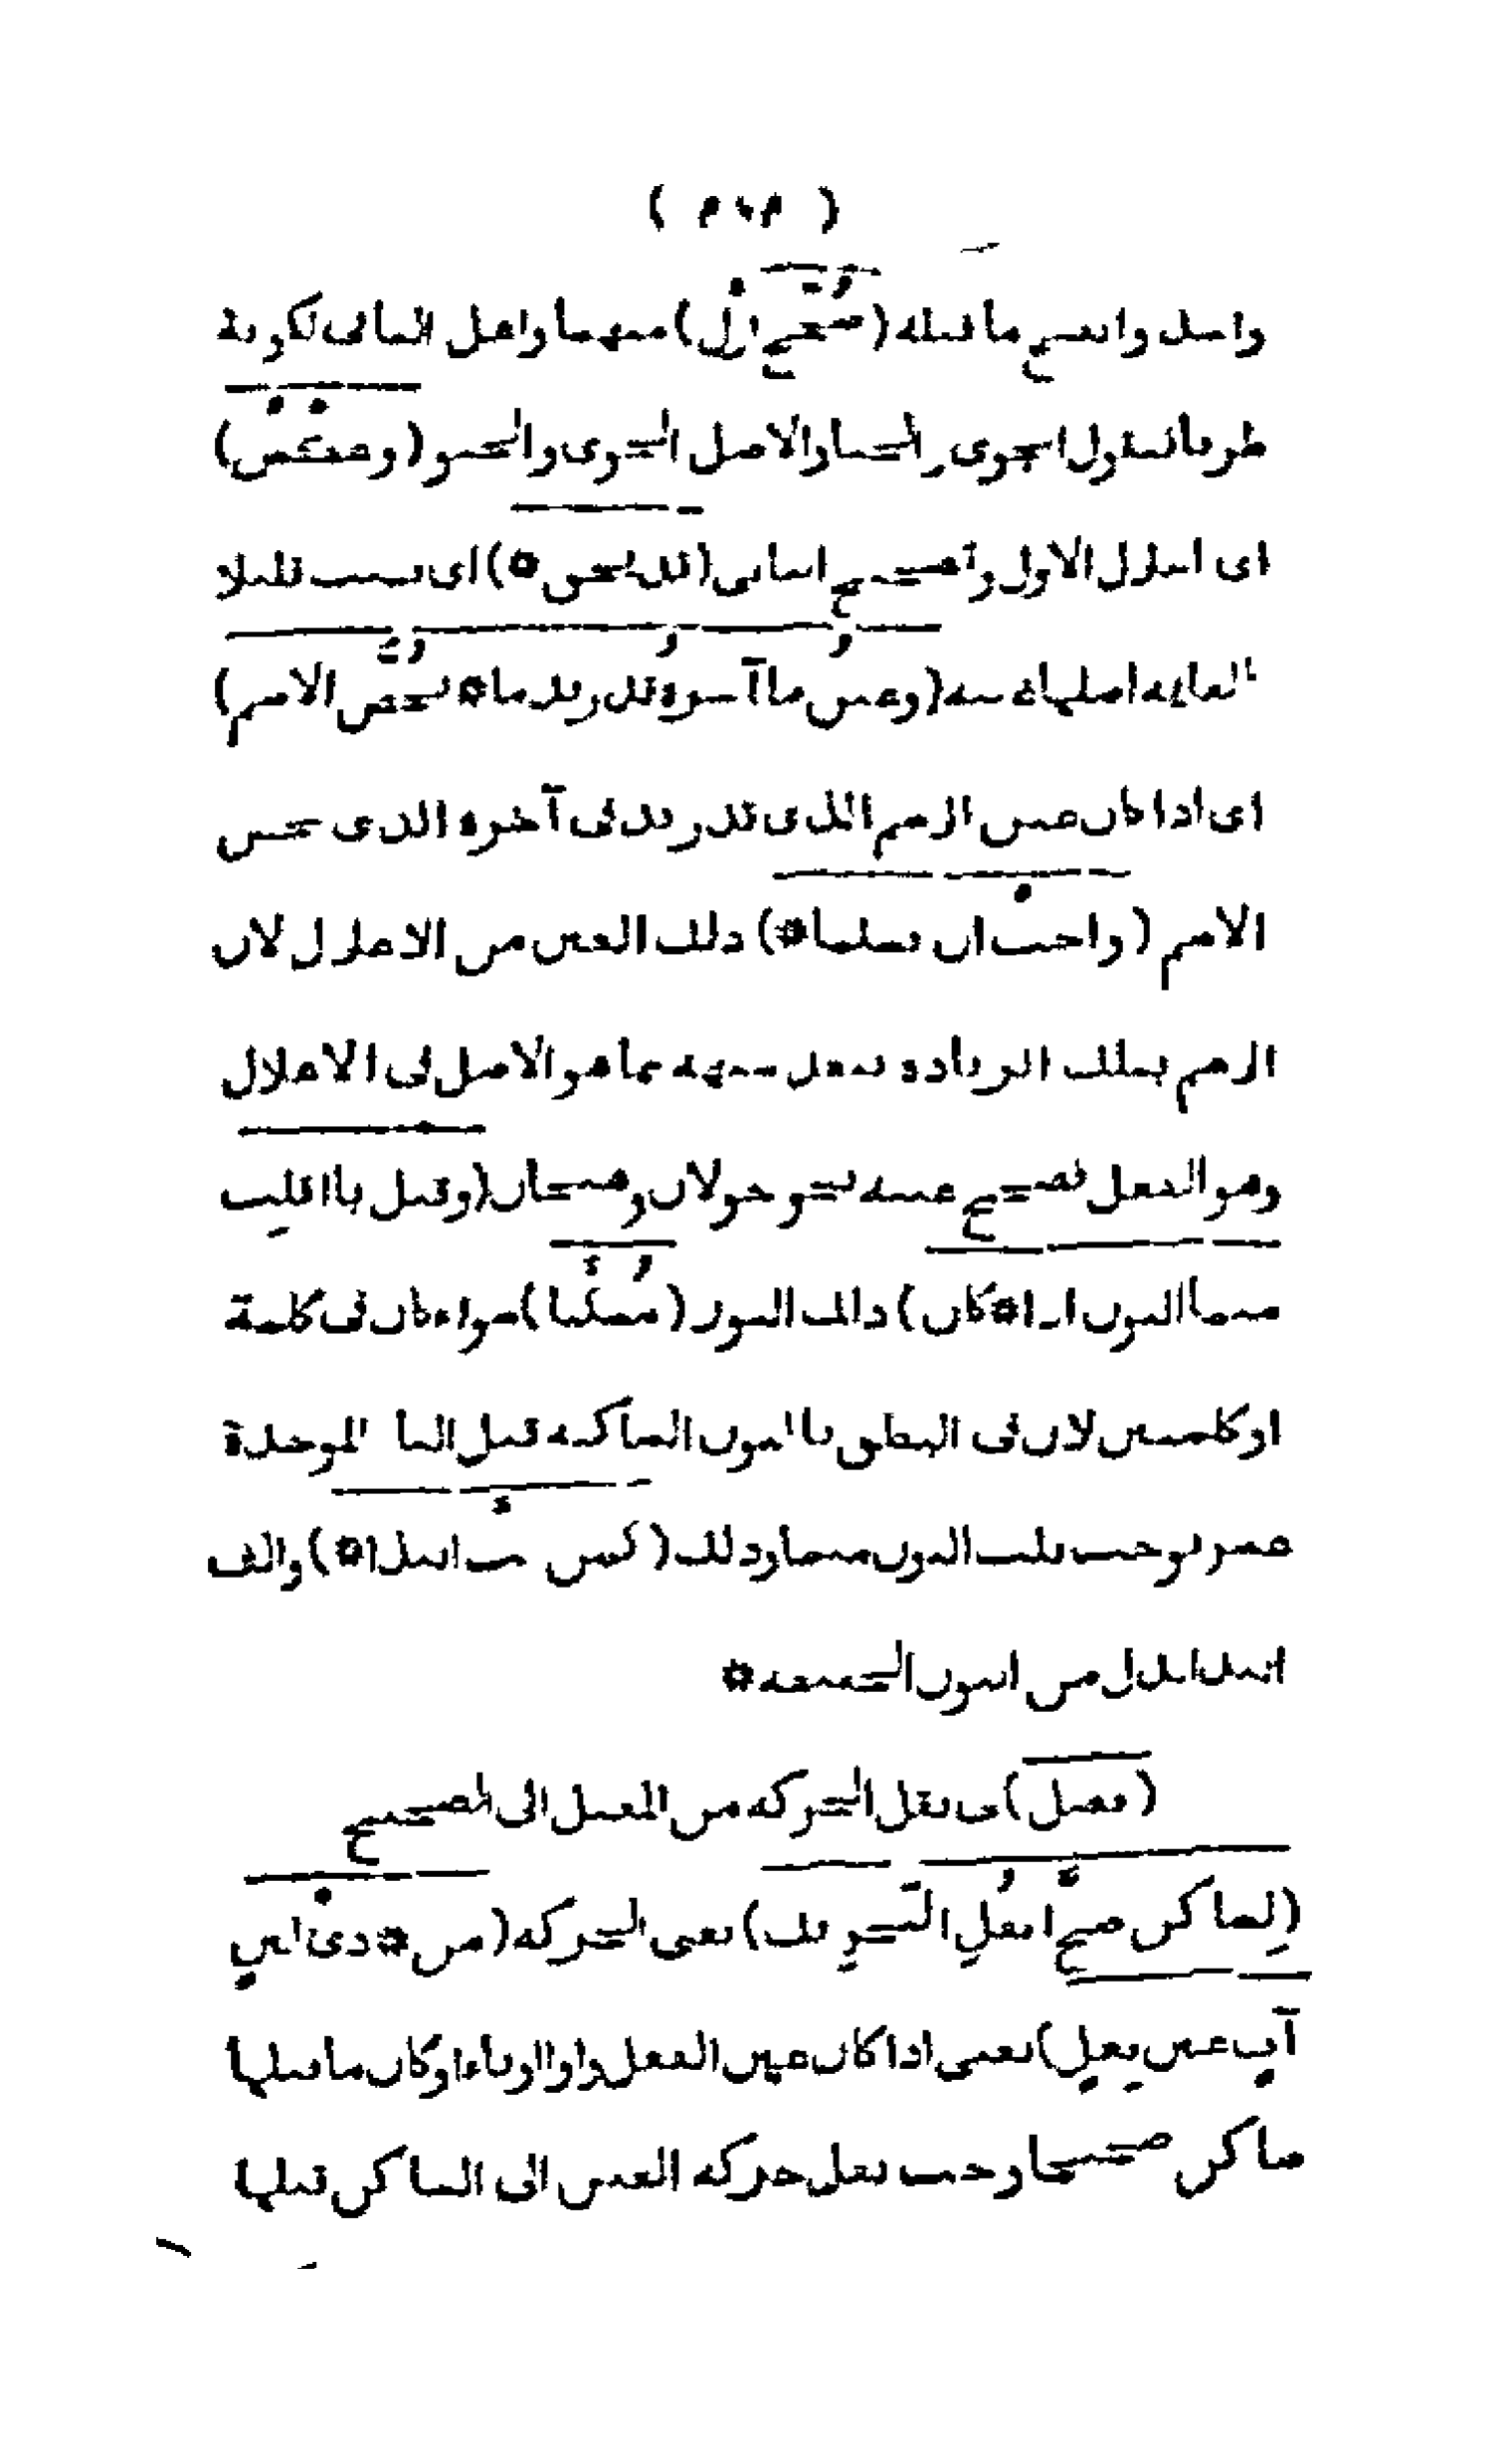 واصل وانفتح ما قبله (صحح اول) منهما واعل الثانى لكونه
طرفا نقول الجوى والحيا والاصل الجوى والحيو (وعكس)
اى اعلال الاول وتصحيح الثانى (قد يحق *) اى يثبت قليلا
اصلها (وعين ما آخره قد زيد ما * يخص الاسم)
اى اذا كان عين الاسم الذى قد زيد فى آخره الذى يخص
الاسم (واجب ان يسلما *) ذلك العين من الاعلال لان
الاسم بتلك الزيادة بما هو الاصل فى الاعلال
وهو الفعل فصحح عينه نحو جولان وهيمان (وقبل با اقلب
ميما النون اذا * كان) ذلك النون (مسكنا) سواء كان فى كلمة
او كلمتين لان فى النطق بالنون الساكنة قبل الباء الموحدة
عسرا فوجب قلب النون ميما وذلك (كمن بت انبذا *) والف
انبذا بدل من النون الخفيفة *
(فصل) فى نقل الحركة من المعتل الى الصحيح
(لساكن صح انقل التحريك) يعنى الحركة (من * ذى لين
آت عين فعل) يعنى اذا كان عين الفعل واوا او ياء وكان ما قبلها
ساكن صحيحا وجب نقل حركة العين الى الساكن قبلها